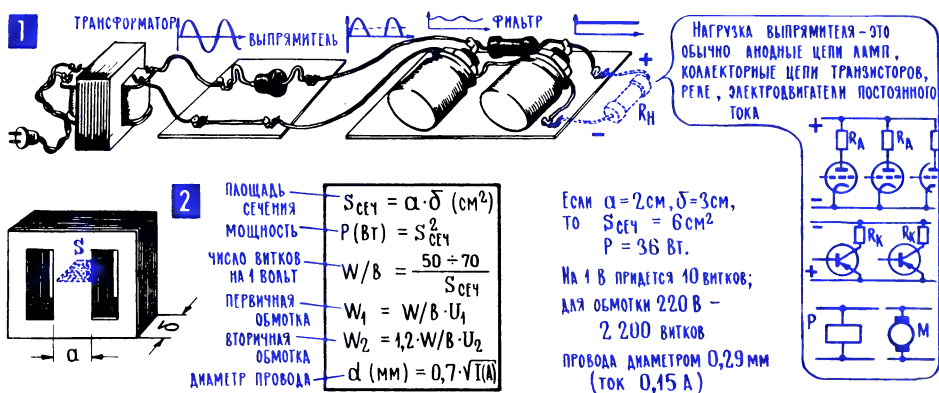 1
ТРАНСФОРМАТОР
ВЫПРЯМИТЕЛЬ
ФИЛЬТР
+
−
Rн
НАГРУЗКА ВЫПРЯМИТЕЛЯ – ЭТО
ОБЫЧНО АНОДНЫЕ ЦЕПИ ЛАМП,
КОЛЛЕКТОРНЫЕ ЦЕПИ ТРАНЗИСТОРОВ,
РЕЛЕ, ЭЛЕКТРОДВИГАТЕЛИ ПОСТОЯННОГО
ТОКА
+
RА RА
−
−
RК RК
+
Р М
2
S
a
δ
ПЛОЩАДЬ
СЕЧЕНИЯ
Sсеч = a·δ (см²)
МОЩНОСТЬ
P(Вт) = S²сеч
ЧИСЛО ВИТКОВ
НА 1 ВОЛЬТ
W/В = 50 ÷ 70 / Sсеч
ПЕРВИЧНАЯ
ОБМОТКА
W₁ = W/В·U₁
ВТОРИЧНАЯ
ОБМОТКА
W₂ = 1,2·W/В·U₂
ДИАМЕТР ПРОВОДА
d (мм) = 0,7·√I(A)
ЕСЛИ a=2см, δ=3см,
ТО Sсеч = 6см²
P = 36 Вт.
НА 1 В ПРИДЕТСЯ 10 ВИТКОВ;
ДЛЯ ОБМОТКИ 220 В –
2 200 ВИТКОВ
ПРОВОДА ДИАМЕТРОМ 0,29 мм
(ТОК 0,15 А)